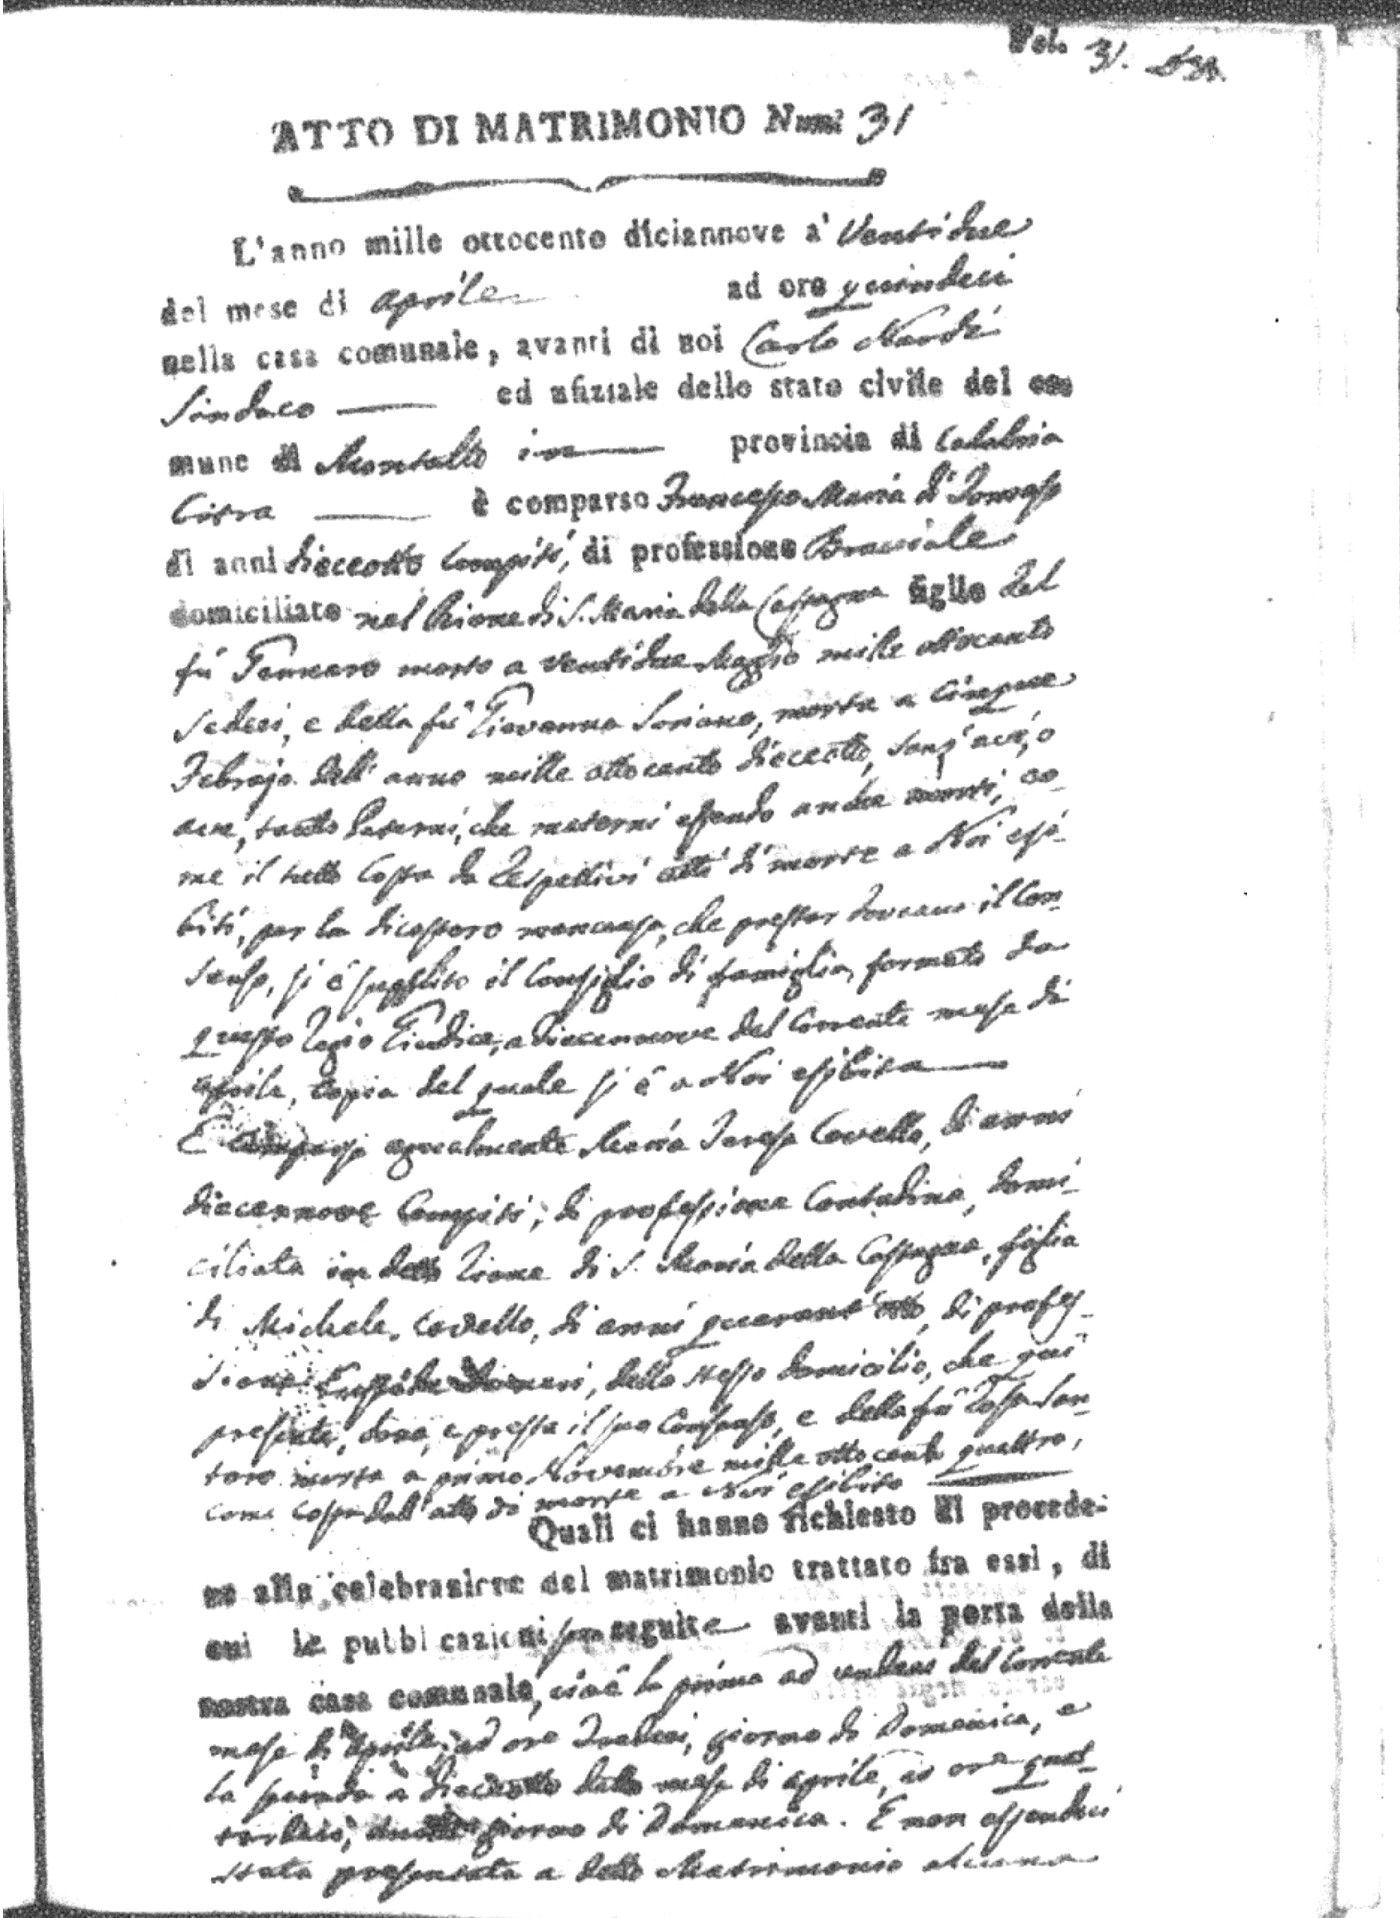 Vol. 31.
ATTO DI MATRIMONIO Num: 31
L'anno mille ottocento diciannove a' Ventidue
del mese di aprile ad ore quindeci
nella casa comunale, avanti di noi Carlo Nardi
Sindaco ed ufiziale dello stato civile del co-
mune di Montalto in provincia di Calabria
Citra è comparso Francesco Maria di Tomaso
di anni dieceotto compiti, di professione Bracciale
domiciliato nel Rione di S. Maria della Castagna figlio del
fu Gennaro morto a ventidue Maggio mille ottocento
sedeci, e della fu Giovanna Soriano, morta a cinque
Febrajo dell'anno mille ottocento dieceotto, senz'avi, o
ave, tanto Paterni, che materni essendo anche morti, co-
me il tutto costa da respettivi atti di morte a Noi esi-
biti, per la di costoro mancanza, che prestar dovano il con-
senso, si è supplito il Consiglio di famiglia, formato da
questo Regio Giudice, a diecennove del corrente mese di
aprile, copia del quale si è a Noi esibita
E comparsa egualmente Maria Teresa Covello, di anni
diecennove compiti, di professione Contadina, domi-
ciliata in detto Rione di S. Maria della Castagna, figlia
di Michele Covello, di anni quarant'otto, di profes-
sione, dello stesso domicilio, che qui
presente, dona, e presta il suo consenso, e della fu Rosa San-
toro morta a primo Novembre mille ottocento quattro,
come costa dall'atto di morte a Noi esibito
Quali ci hanno richiesto di procede-
re alla celebrazione del matrimonio trattato fra essi, di
cui le pubblicazioni son seguite avanti la porta della
nostra casa comunale, cioè la prima ad undeci del corrente
mese di aprile, ad ore tredeci, giorno di Domenica, e
la seconda a dieceotto detto mese di aprile, ad ore quat-
tordeci, giorno di Domenica. E non essendoci
stata presentata a detto Matrimonio alcuna